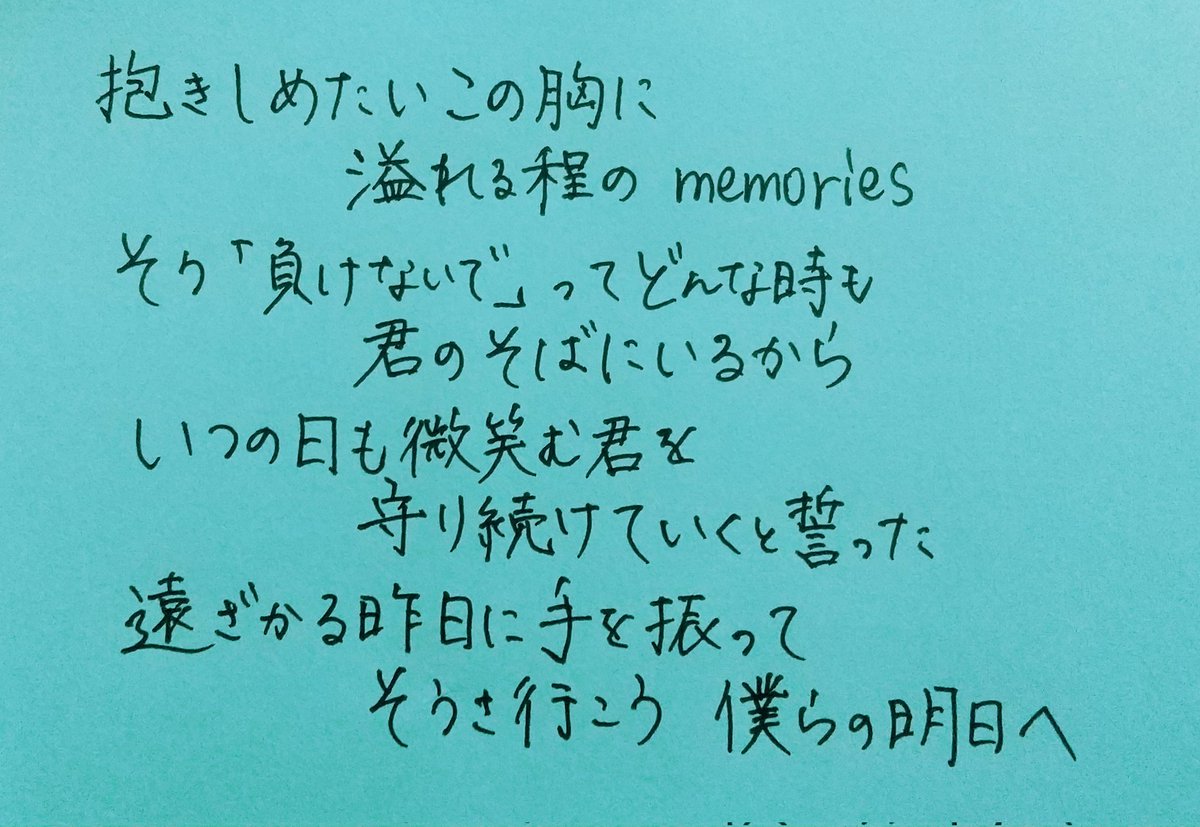 抱きしめたいこの胸に
溢れる程の memories
そう「負けないで」ってどんな時も
君のそばにいるから
いつの日も微笑む君を
守り続けていくと誓った
遠ざかる昨日に手を振って
そうさ行こう 僕らの明日へ